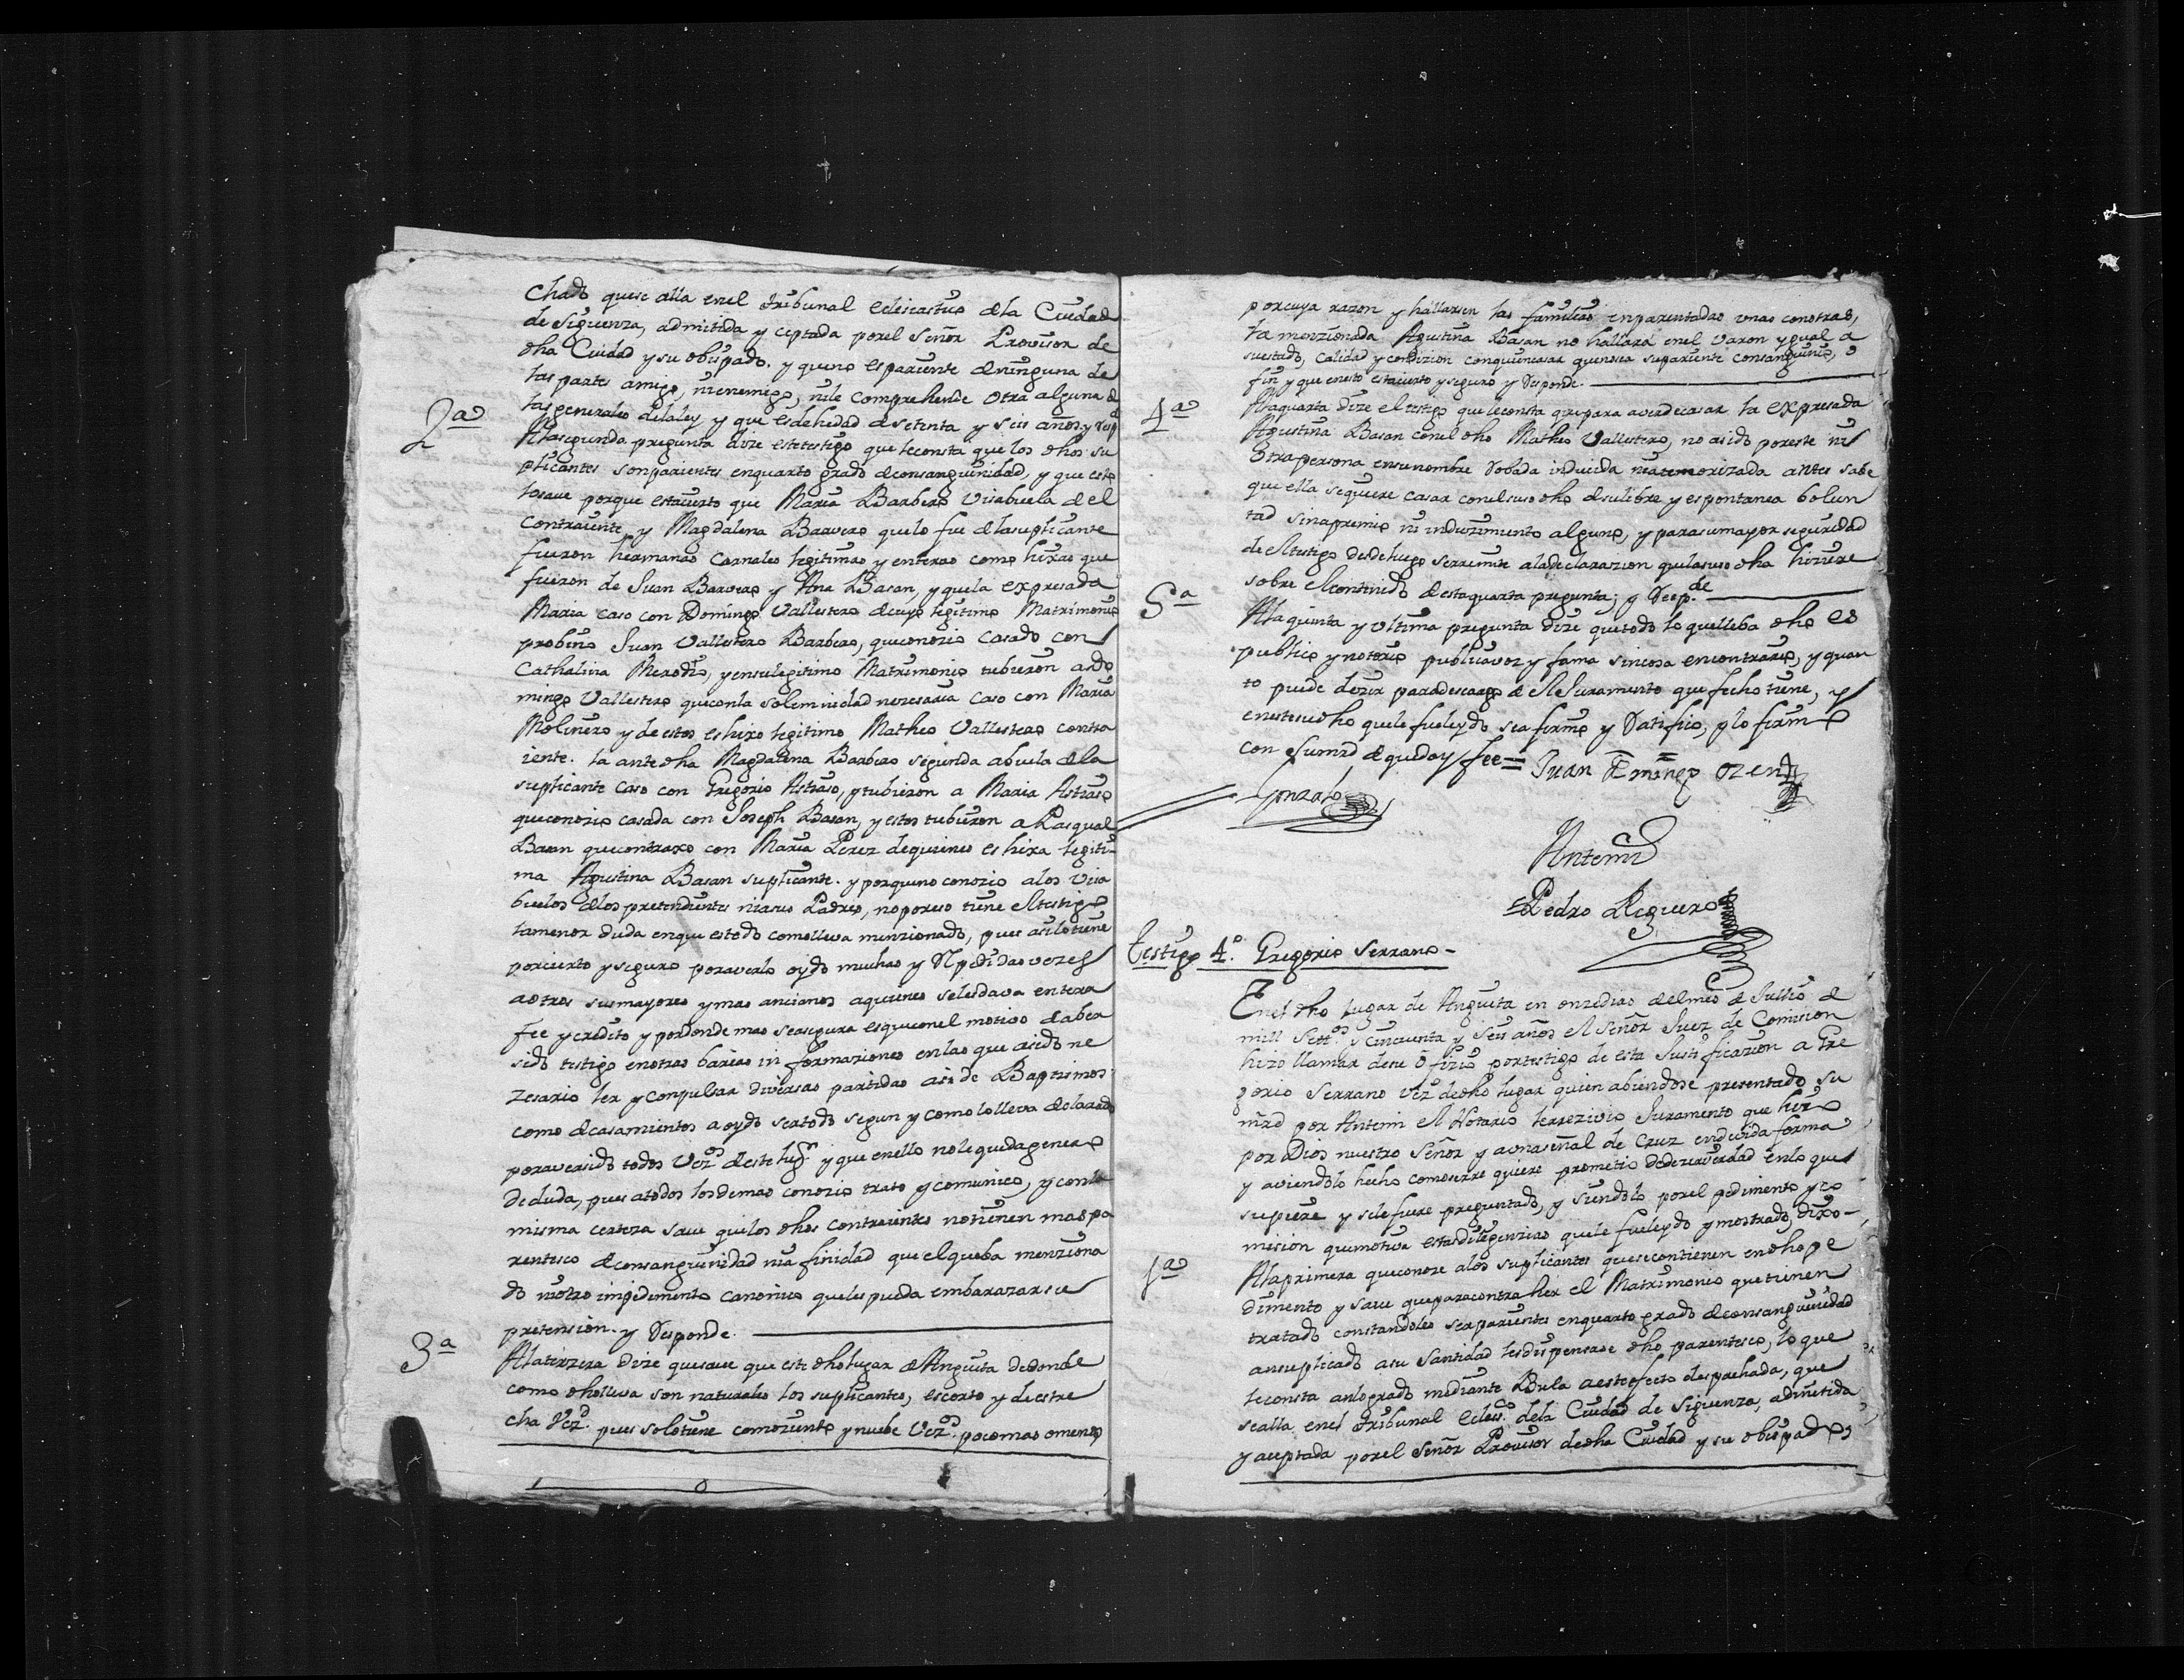 chado quese alla enel tribunal eclesiastico dela Ciudad
de Siguenza, admitida y ceptada porel Señor Provisor de
dha Ciudad y su obispado. y queno espariente deninguna de
las partes amigo, nienemigo, nile comprehende otra alguna de
las generales delaley y que esdehedad de setenta y seis años. y Resp.de
2a Alasegunda pregunta dize estetestigo que leconsta que los dhos su
plicantes sonparientes enquarto grado deconsanguinidad, y que esto
losave porque estacierto que Maria Barbero visabuela de el
contraiente y Magdalena Barvero quelo fue delasuplicante
fueron hermanas carnales legitimas y enteras como hixas que
fueron de Juan Barvero y Ana Basan, y quela expresada
Maria caso con Domingo Vallestero decuyo legitimo Matrimonio
probino Juan Vallestero Barbero, queconozio casado con
Cathalina Merodio, yensulegitimo Matrimonio tubieron aDo
mingo Vallestero queconla solemnidad nezesaria caso con Maria
Molinero y de estos es hixo legitimo Matheo Vallestero contra
iente. la ante dha Magdalena Barbero segunda abuela dela
suplicante caso con Gregorio Astraso, ytubieron a Maria Astraso
queconozio casada con Joseph Basan, y estos tubieron a Pasqual
Basan quecontraxo con Maria Perez dequienes es hixa legiti-
ma Agustina Basan suplicante. y porqueno conozio alos visa
buelos delos pretendientes niasus Padres, noporeso tiene eltestigo
lamenor duda enque estodo comolleva menzionado, pues asilotiene
porcierto yseguro poraverlo oydo muchas y Repetidas vezes
aotros susmayores ymas ancianos aquienes selesdava entera
fee ycredito y pordonde mas seasegura esqueconel motivo deaber
sido testigo enotras barias informaziones enlas que asido ne
zesario ler y conpulsar diversas partidas asi de Baptismos
como decasamientos aoydo sertodo segun y como lolleva declarado
poraversido todos Vez.os destelug.r y que enello nolequedagenero
deduda, pues atodos losdemas conozio trato ycomunico, yconla
misma certeza save quelos dhos contraientes notienen maspa
rentesco deconsanguinidad niafinidad que elqueba menziona
do niotro impedimento canonico quelespueda embarazarsu
pretension. y Responde.
3a Alaterzera dize quesave que este dholugar de Anguita dedonde
como dholleva son naturales los suplicantes, escorto y deestre
cha Vez.d pues solotiene comoziento ynuebe Vez.os pocomas omenos
porcuya razon y hallarsen las familias enparentadas unas conotras,
la menzionada Agustina Basan no hallará enel varon ygual a
suestado, calidad ycondizion conquiencasar quenosea supariente consanguineo, o
fin y que enesto estacierto yseguro y Responde.
4a Alaquarta dize eltestigo que leconsta quepara averdecasar la expresada
Agustina Basan conel dho Matheo Vallestero, no asido poreste ni
otrapersona ensunombre Robada induzida niatemorizada antes sabe
que ella sequiere casar conelsuso dho desulibre yespontanea bolun
tad sinapremio ni induzimento alguno, y parasumayor seguridad
de eltestigo desdeluego seremite aladeclarazion quelasuso dha hiziere
sobre elcontenido destaquarta pregunta; y Resp.de
5a Alaquinta y ultima pregunta dize quetodo lo quelleba dho es
publico ynotorio publicavoz y fama sincosa encontrario, y quan
to puede dezir paradescargo de elJuramento que fecho tiene, y
enestesudho quele fueleydo seafirmo y Ratifico, ylo firmo
con sumrd dequedoy fee = Juan Domingo
Gonzalo
Antemi
Pedro Reguero
Testigo 4.o Gregorio Serrano-
Enel dho lugar de Anguita en onzedias delmes de Jullio de
mill Sett.os y Cincuenta y Seis años el Señor Juez de Comision
hizo llamar desu ofizio portestigo de esta Justificazion a Gre
gorio Serrano Vez.o dedho lugar quien abiendose presentado su
mrd por Antemi el Notario lerrezivio Juramento que hizo
por Dios nuestro Señor y aunaseñal de Cruz endevida forma
y aviendolo hecho comoserre quiere prometio dedezirverdad enlo que
supiere y sele fuere preguntado, y siendolo porel pedimento yco
mision quemotiva estasdiligenzias quele fueleydo ymostrado, dixo-
1a Alaprimera queconoze alos suplicantes quesecontienen endhope
dimento y save queparacontraher el Matrimonio quetienen
tratado constandoles serparientes enquarto grado deconsanguinidad
ansuplicado asu Santidad lesdispensase dho parentesco, lo que
leconsta anlogrado mediante Bula aesteefecto despachada, que
sealla enel tribunal Ecles.co dela Ciudad de Siguenza, admitida
yaceptada porel Señor Provisor dedha Ciudad y su obispado,